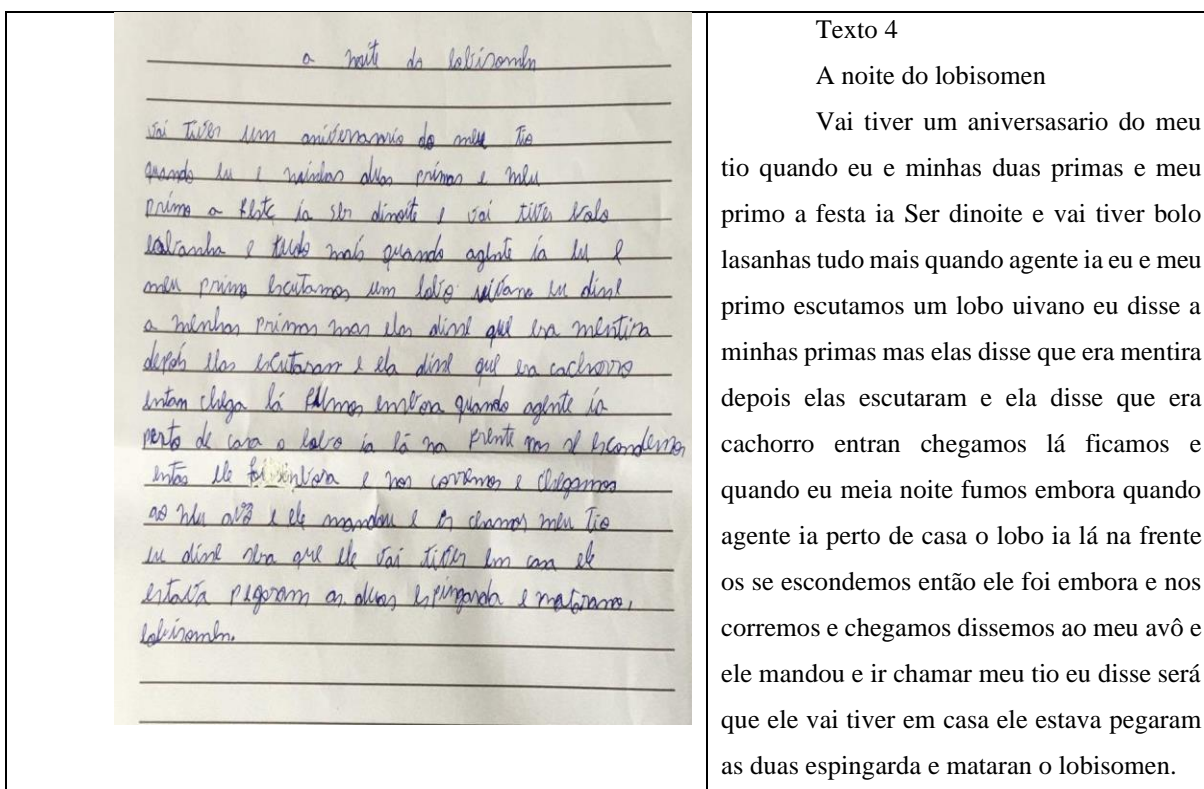 a noite do lobisomen
vai tiver um aniversario do meu tio
quando eu e minhas duas primas e meu
primo a festa ia ser dinoite e vai tiver bolo
e tudo mais quando agente ia eu e
meu primo escutamos um lobo uivano eu disse
a minhas primas mas elas disse que era mentira
depois elas escutaram e ela disse que era cachorro
entam chega lá embora quando agente ia
perto de casa o lobo ia lá na frente nos se escondemos
então ele foi embora e nos corremos e chegamos
ao meu avô e ele mandou e ir chamar meu tio
eu disse sera que ele vai tiver em casa ele
estava pegaram as duas espingarda e mataram o
lobisomen.
Texto 4
A noite do lobisomen
Vai tiver um aniversasario do meu
tio quando eu e minhas duas primas e meu
primo a festa ia Ser dinoite e vai tiver bolo
lasanhas tudo mais quando agente ia eu e meu
primo escutamos um lobo uivano eu disse a
minhas primas mas elas disse que era mentira
depois elas escutaram e ela disse que era
cachorro entran chegamos lá ficamos e
quando eu meia noite fumos embora quando
agente ia perto de casa o lobo ia lá na frente
os se escondemos então ele foi embora e nos
corremos e chegamos dissemos ao meu avô e
ele mandou e ir chamar meu tio eu disse será
que ele vai tiver em casa ele estava pegaram
as duas espingarda e mataran o lobisomen.